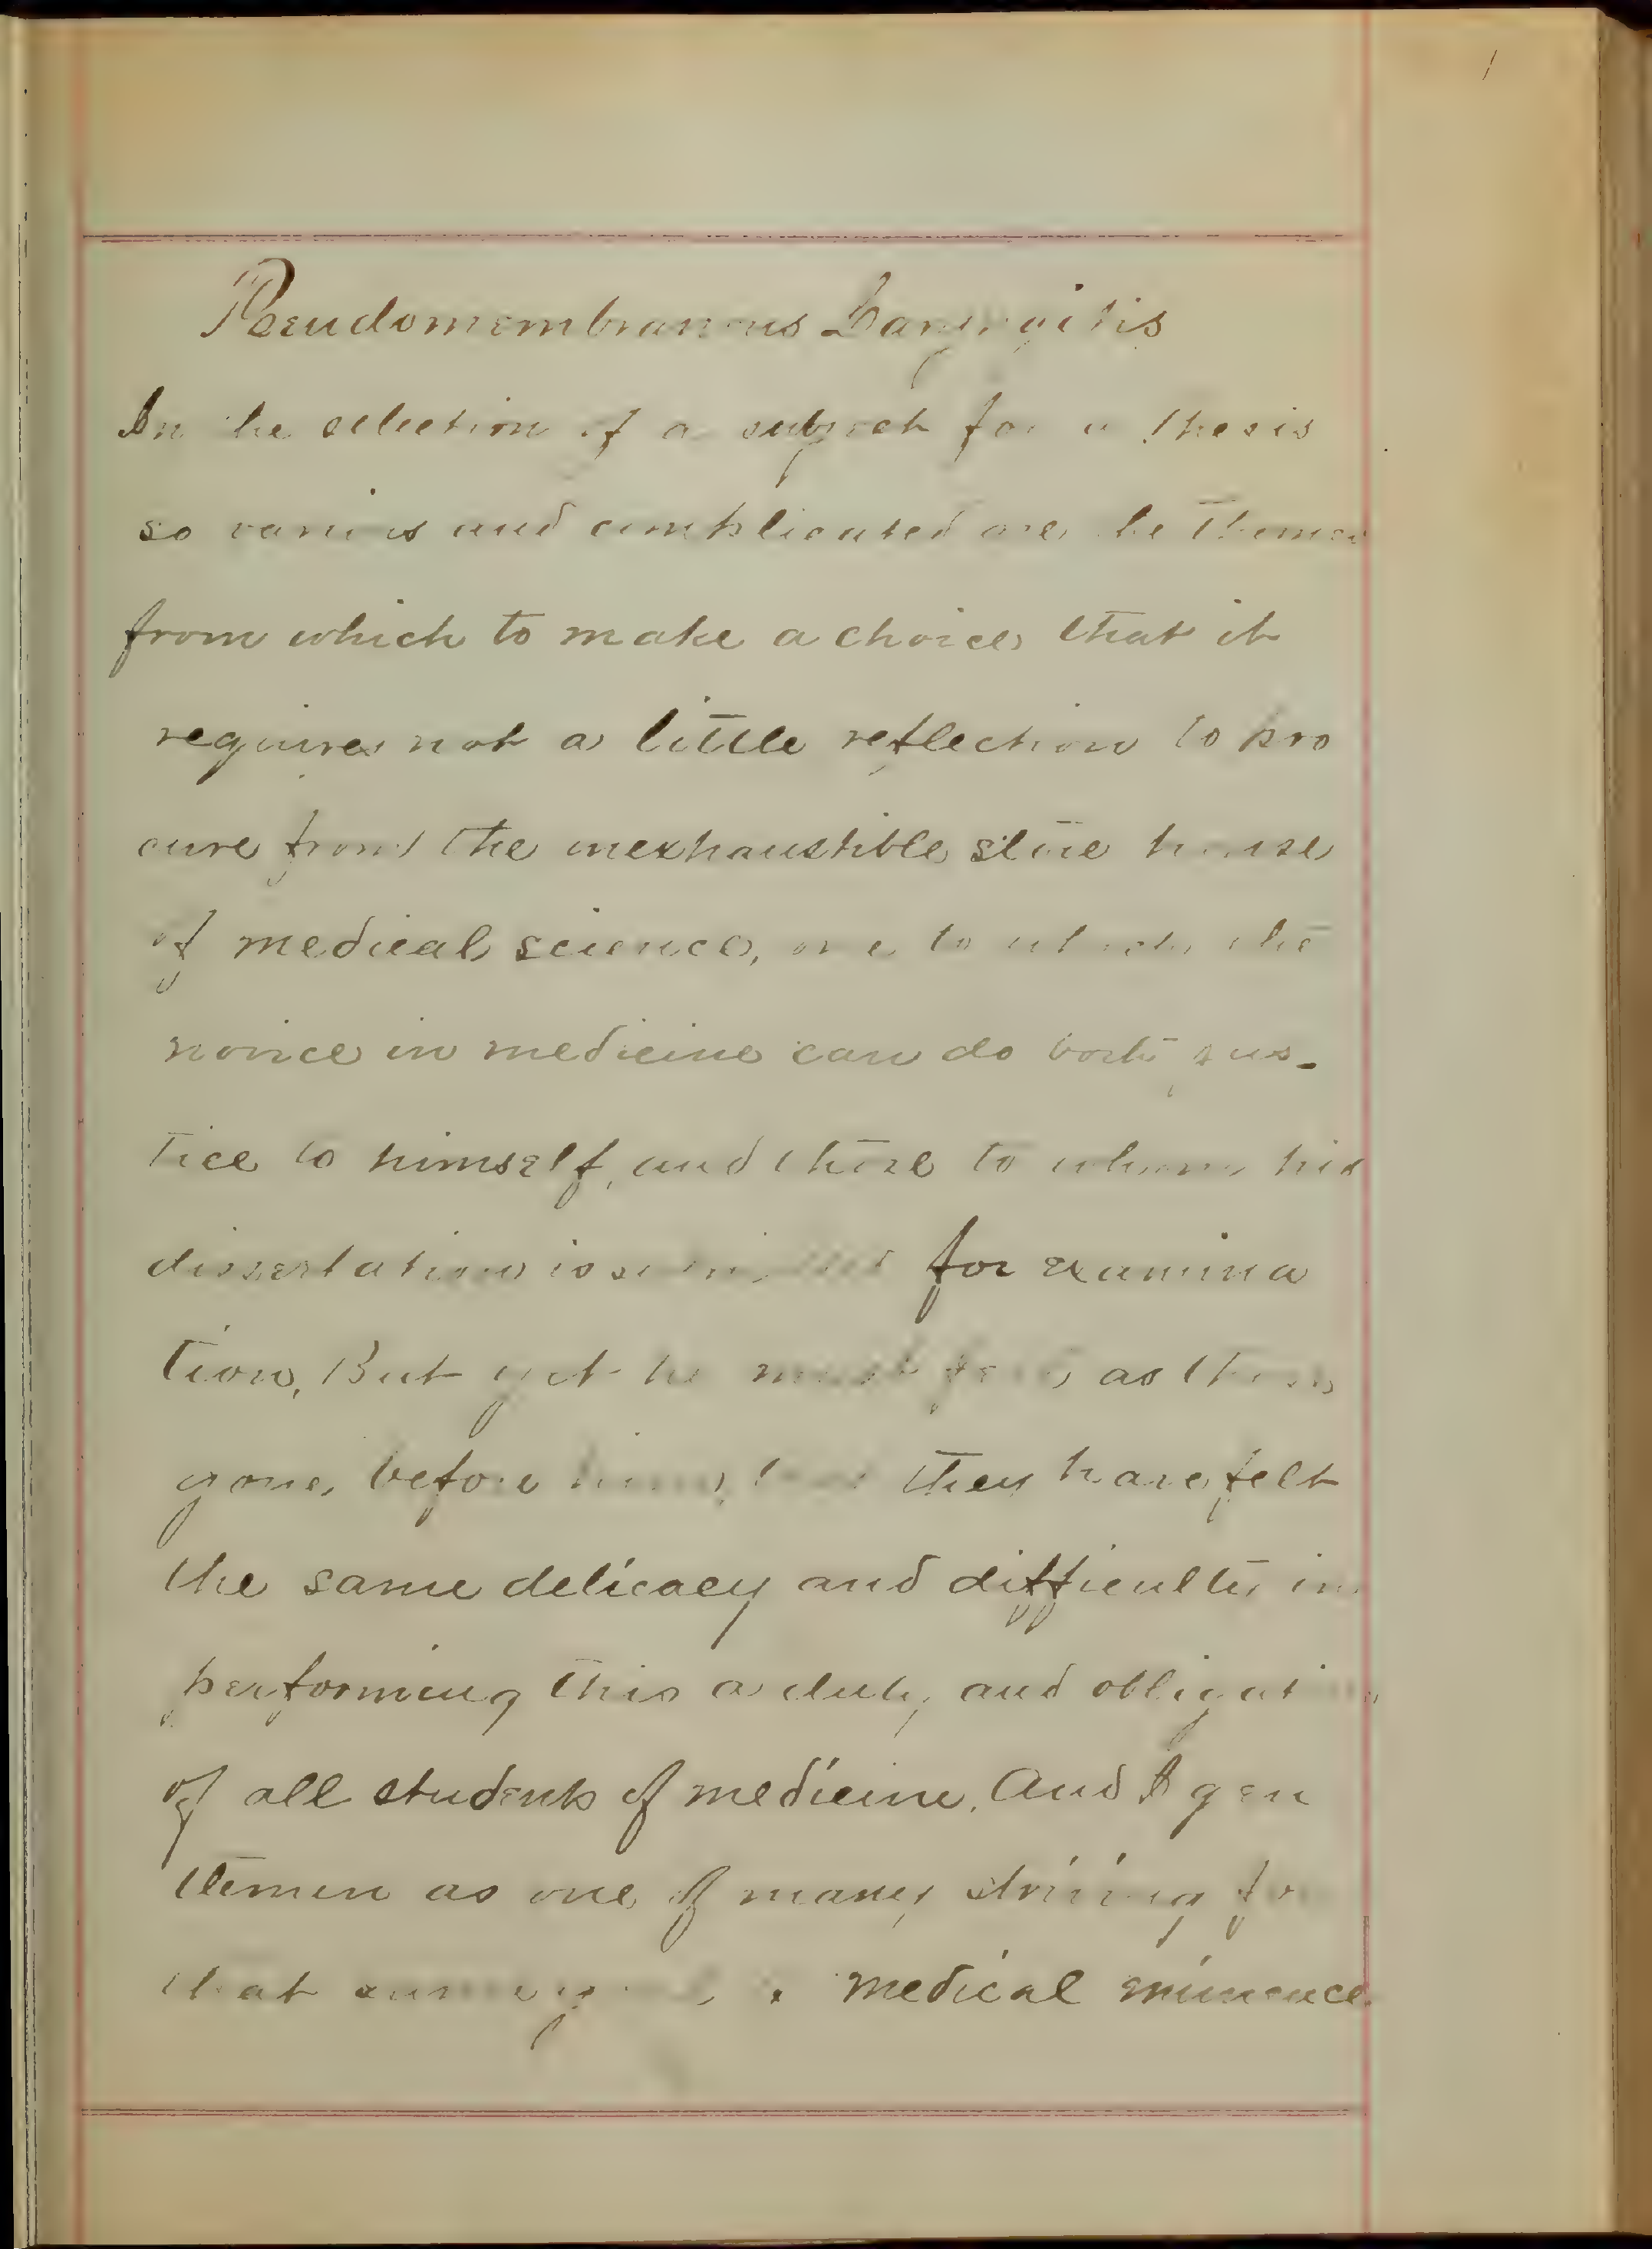 1
Pseudomembranous Laryngitis
In the selection of a subject for a thesis
so various and complicated are the themes
from which to make a choice, that it
requires not a little reflection to pro
cure from the inexhaustible store house
of medical science, one to which the
novice in medicine can do both jus-
tice to himself, and those to whom his
dissertation is submitted for examina
tion, But yet he must feel as those
gone before him, that they have felt
the same delicacy and difficulty in
performing this a duty, and obligation
of all students of medicine. And I gen
tlemen as one of many striving for
that same medical eminence